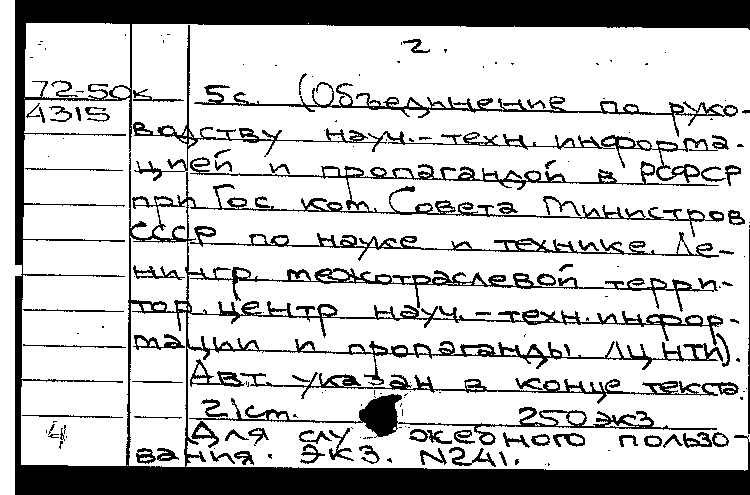 2.
72-50к 5с. (Объединение по руко-
4315 водству науч.-техн. информа-
цией и пропагандой в РСФСР
при Гос. ком. Совета Министров
СССР по науке и технике. Ле-
нингр. межотраслевой терри-
тор. центр науч.-техн. инфор-
мации и пропаганды. ЛЦНТИ).
Авт. указан в конце текста.
21ст. 250 экз.
4 Для служебного пользо-
вания. Экз. N241.